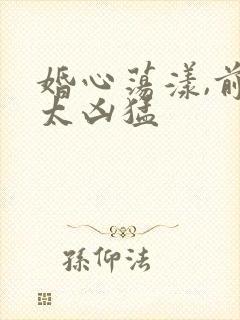 婚心荡漾,前
太凶猛
孫仰法